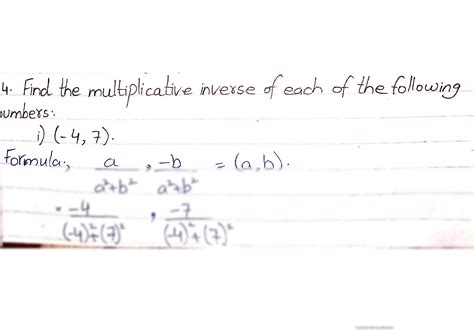 4. Find the multiplicative inverse of each of the following
numbers:.
i) (-4, 7).
Formula:, a/(a²+b²) , -b/(a²+b²) = (a,b).
• -4/((-4)²+(7)²) , -7/((-4)²+(7)²)